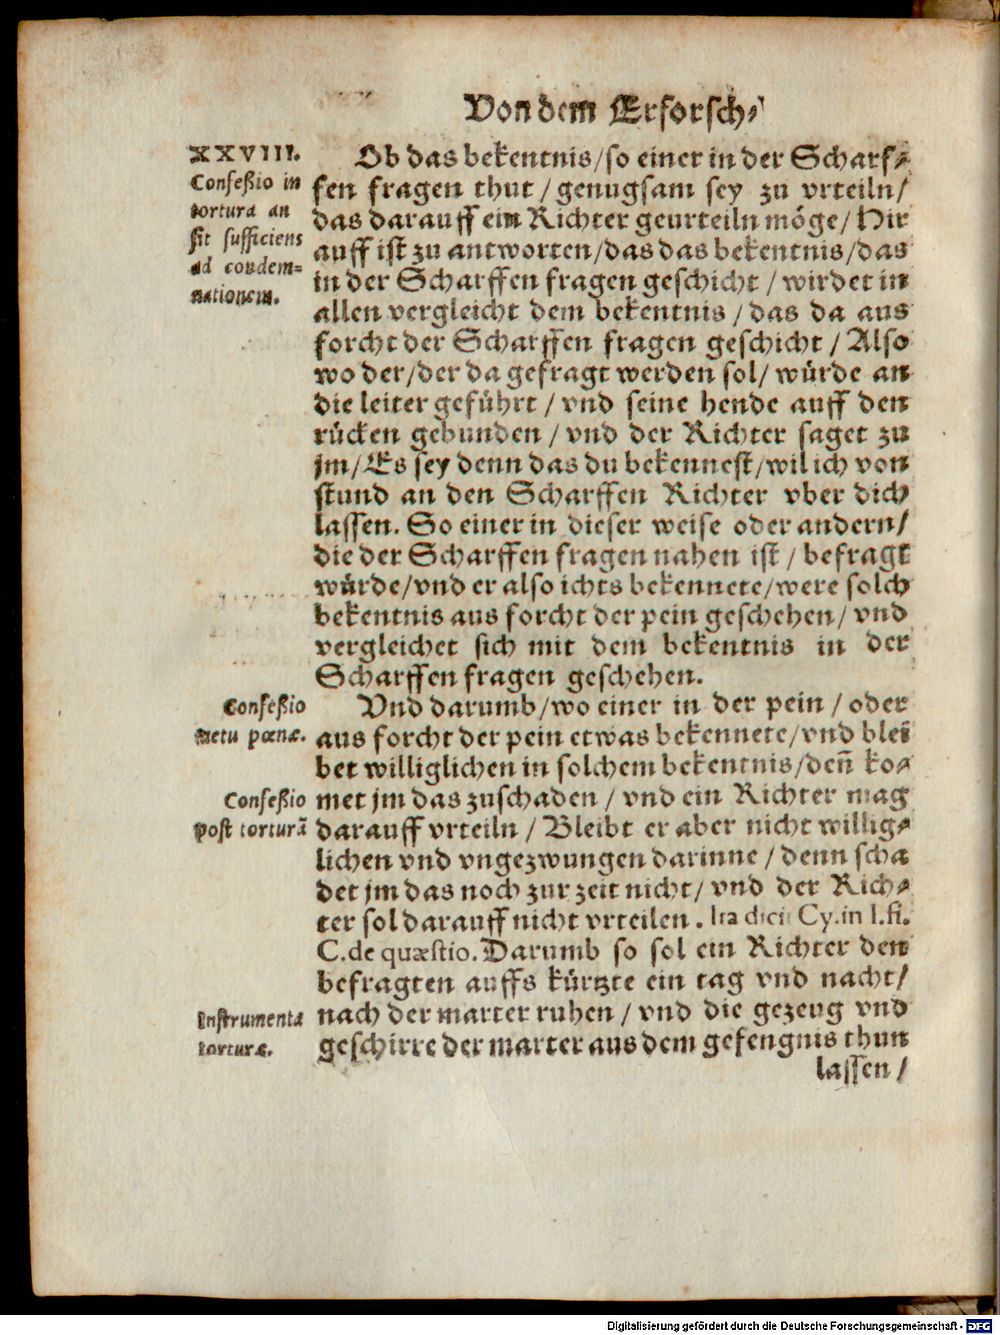 Von dem Erforsch⸗
XXVIII.
Confeßio in
tortura an
sit sufficiens
ad condem⸗
nationem.
Ob das bekentnis/so einer in der Scharf⸗
fen fragen thut/genugsam sey zu vrteiln/
das darauff ein Richter geurteiln möge/Hir
auff ist zu antworten/das das bekentnis/das
in der Scharffen fragen geschicht/wirdet in
allen vergleicht dem bekentnis/das da aus
forcht der Scharffen fragen geschicht/Also
wo der/der da gefragt werden sol/würde an
die leiter geführt/vnd seine hende auff den
rücken gebunden/vnd der Richter saget zu
jm/Es sey denn das du bekennest/wil ich von
stund an den Scharffen Richter vber dich
lassen. So einer in dieser weise oder andern/
die der Scharffen fragen nahen ist/befragt
würde/vnd er also ichts bekennete/were solch
bekentnis aus forcht der pein geschehen/vnd
vergleichet sich mit dem bekentnis in der
Scharffen fragen geschehen.
Confeßio
metu pœnæ.
Vnd darumb/wo einer in der pein/oder
aus forcht der pein etwas bekennete/vnd blei
bet williglichen in solchem bekentnis/deñ ko⸗
Confeßio
post torturā
met jm das zuschaden/vnd ein Richter mag
darauff vrteiln/Bleibt er aber nicht willig⸗
lichen vnd vngezwungen darinne/denn scha
det jm das noch zur zeit nicht/vnd der Rich⸗
ter sol darauff nicht vrteilen. Ita dicit Cy.in l.fi.
C.de quæstio. Darumb so sol ein Richter den
befragten auffs kürtzte ein tag vnd nacht/
Instrumenta
torturæ.
nach der marter ruhen/vnd die gezeug vnd
geschirre der marter aus dem gefengnis thun
lassen/
Digitalisierung gefördert durch die Deutsche Forschungsgemeinschaft - DFG